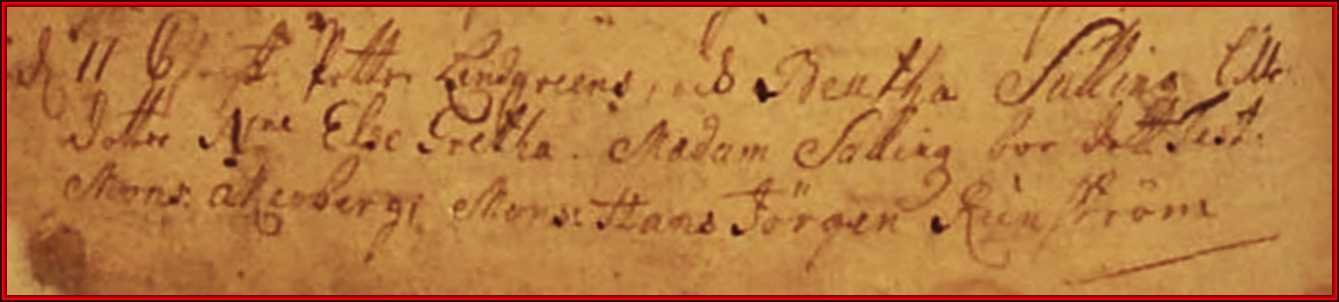 d 11 Petter Lindgreens, Beutha Salling
dotter Else Gretha. Madam Salling bar dett Test.
Mons: Akerberg, Mons: Hans Jörgen Runström